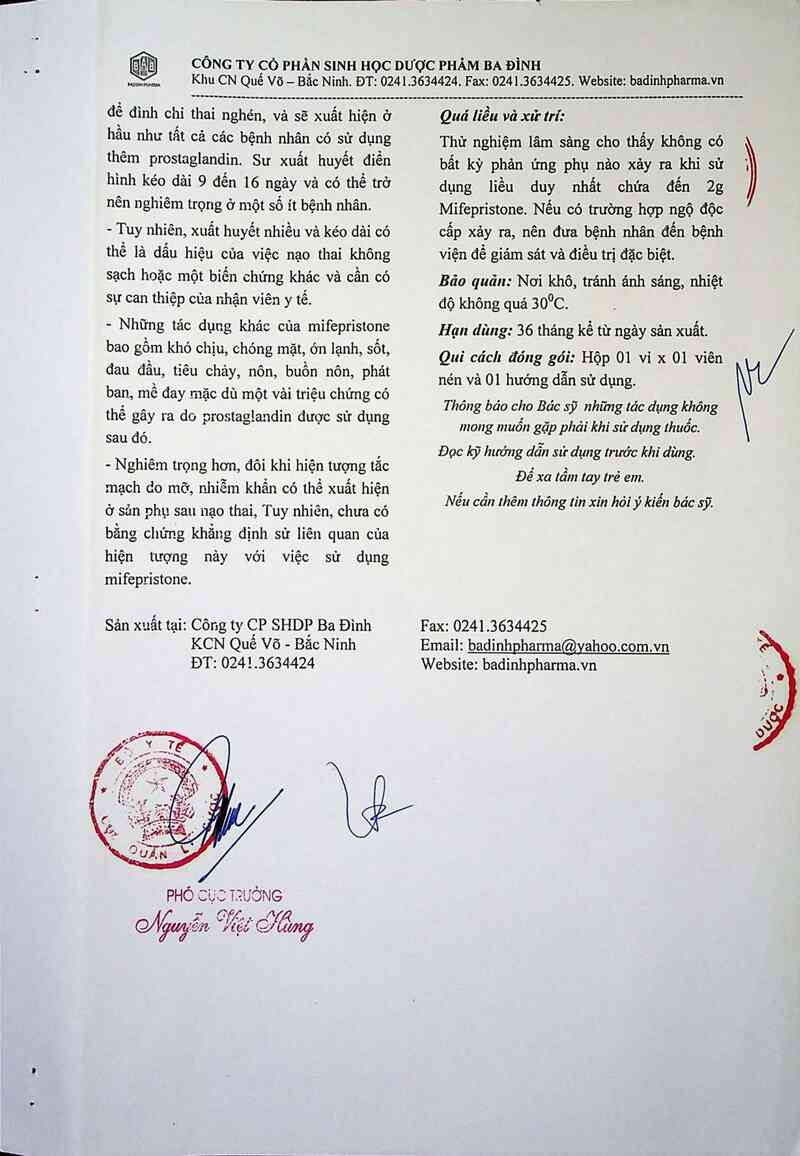 CÔNG TY CỔ PHẦN SINH HỌC DƯỢC PHẨM BA ĐÌNH
Khu CN Quế Võ – Bắc Ninh. ĐT: 0241.3634424. Fax: 0241.3634425. Website: badinhpharma.vn
để đình chỉ thai nghén, và sẽ xuất hiện ở
hầu như tất cả các bệnh nhân có sử dụng
thêm prostaglandin. Sư xuất huyết điển
hình kéo dài 9 đến 16 ngày và có thể trở
nên nghiêm trọng ở một số ít bệnh nhân.
- Tuy nhiên, xuất huyết nhiều và kéo dài có
thể là dấu hiệu của việc nạo thai không
sạch hoặc một biến chứng khác và cần có
sự can thiệp của nhận viên y tế.
- Những tác dụng khác của mifepristone
bao gồm khó chịu, chóng mặt, ớn lạnh, sốt,
đau đầu, tiêu chảy, nôn, buồn nôn, phát
ban, mề đay mặc dù một vài triệu chứng có
thể gây ra do prostaglandin được sử dụng
sau đó.
- Nghiêm trọng hơn, đôi khi hiện tượng tắc
mạch do mỡ, nhiễm khẩn có thể xuất hiện
ở sản phụ sau nạo thai, Tuy nhiên, chưa có
bằng chứng khẳng định sử liên quan của
hiện tượng này với việc sử dụng
mifepristone.
Quá liều và xử trí:
Thử nghiệm lâm sàng cho thấy không có
bất kỳ phản ứng phụ nào xảy ra khi sử
dụng liều duy nhất chứa đến 2g
Mifepristone. Nếu có trường hợp ngộ độc
cấp xảy ra, nên đưa bệnh nhân đến bệnh
viện để giám sát và điều trị đặc biệt.
Bảo quản: Nơi khô, tránh ánh sáng, nhiệt
độ không quá 30⁰C.
Hạn dùng: 36 tháng kể từ ngày sản xuất.
Qui cách đóng gói: Hộp 01 vỉ x 01 viên
nén và 01 hướng dẫn sử dụng.
Thông báo cho Bác sỹ những tác dụng không
mong muốn gặp phải khi sử dụng thuốc.
Đọc kỹ hướng dẫn sử dụng trước khi dùng.
Để xa tầm tay trẻ em.
Nếu cần thêm thông tin xin hỏi ý kiến bác sỹ.
Sản xuất tại: Công ty CP SHDP Ba Đình
KCN Quế Võ - Bắc Ninh
ĐT: 0241.3634424
Fax: 0241.3634425
Email: badinhpharma@yahoo.com.vn
Website: badinhpharma.vn
DƯỢC
BỘ Y TẾ
QUẢN L
PHÓ CỤC TRƯỞNG
Nguyễn Việt Hùng